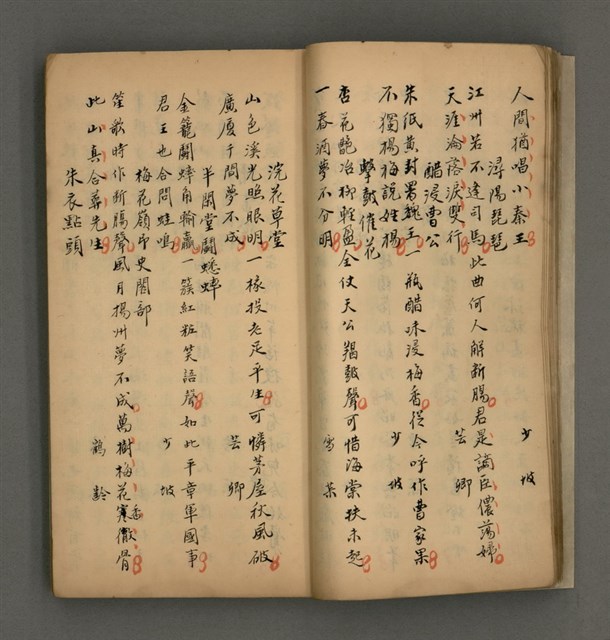 人間猶唱小秦王　少坡
潯陽琵琶
江州若不逢司馬此曲何人解斷腸君是謫臣儂蕩婦
天涯淪落淚雙行　芸卿
醋浸曹公
朱紙黃封署魏王一瓶醋味浸梅香從今呼作曹家果
不獨楊梅說姓楊　少坡
擊鼓催花
杏花艷冶柳輕盈全仗天公羯鼓聲可惜海棠扶未起
一春酒夢不分明　雪菜
浣花草堂
山色溪光照眼明一椽投老足平生可憐茅屋秋風破
廣厦千間夢不成　芸卿
半閒堂鬬蟋蟀
金籠鬬蟀角輸贏一簇紅粧笑語聲如此平章軍國事
君王也合問蛙鳴　少坡
梅花嶺吊史閣部
笙歌時作斷腸聲風月揚州夢不成萬樹梅花寒徹骨
香
此山真合葬先生　鶴齡
朱衣點頭